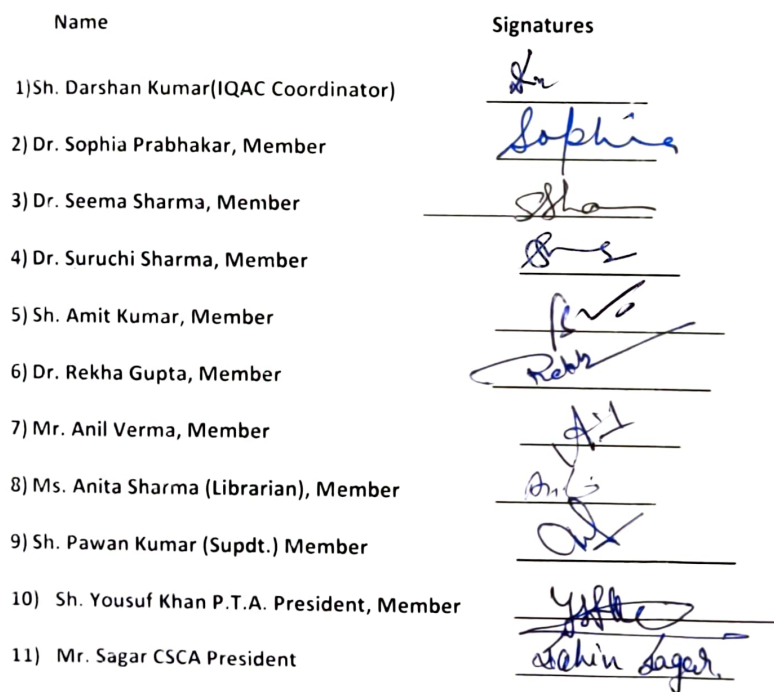 Name Signatures
1)Sh. Darshan Kumar(IQAC Coordinator)
2) Dr. Sophia Prabhakar, Member Sophia
3) Dr. Seema Sharma, Member
4) Dr. Suruchi Sharma, Member
5) Sh. Amit Kumar, Member
6) Dr. Rekha Gupta, Member
7) Mr. Anil Verma, Member
8) Ms. Anita Sharma (Librarian), Member
9) Sh. Pawan Kumar (Supdt.) Member
10) Sh. Yousuf Khan P.T.A. President, Member
11) Mr. Sagar CSCA President Sahin Sagar.